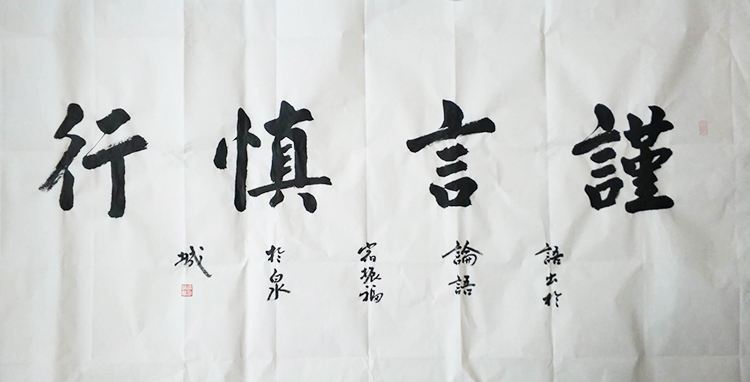 謹言慎行
語出於
論語
振福
於泉
城